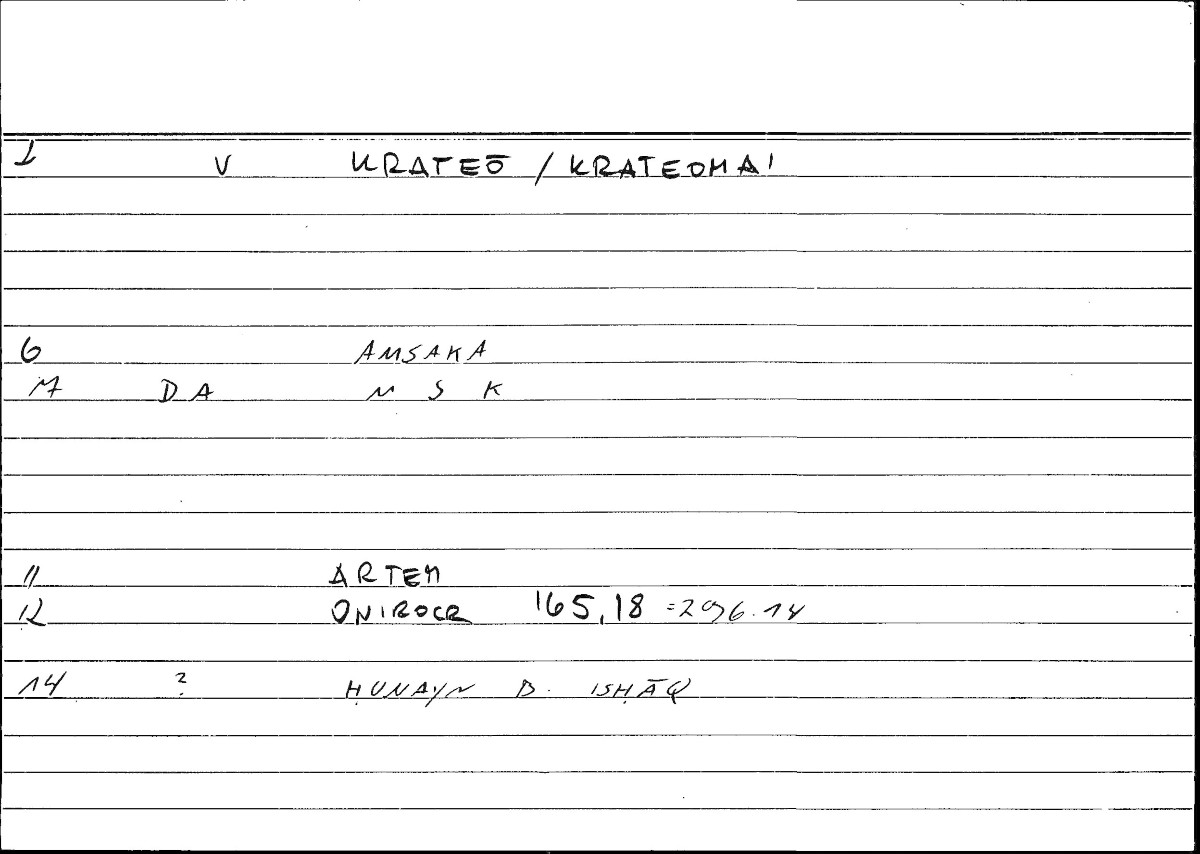 1 V KRATEŌ / KRATEOMAI
6 AMSAKA
M DA M S K
11 ARTEM
12 ONIROCR 165,18 =296.14
14 ? ḤUNAYN B. ISḤĀQ